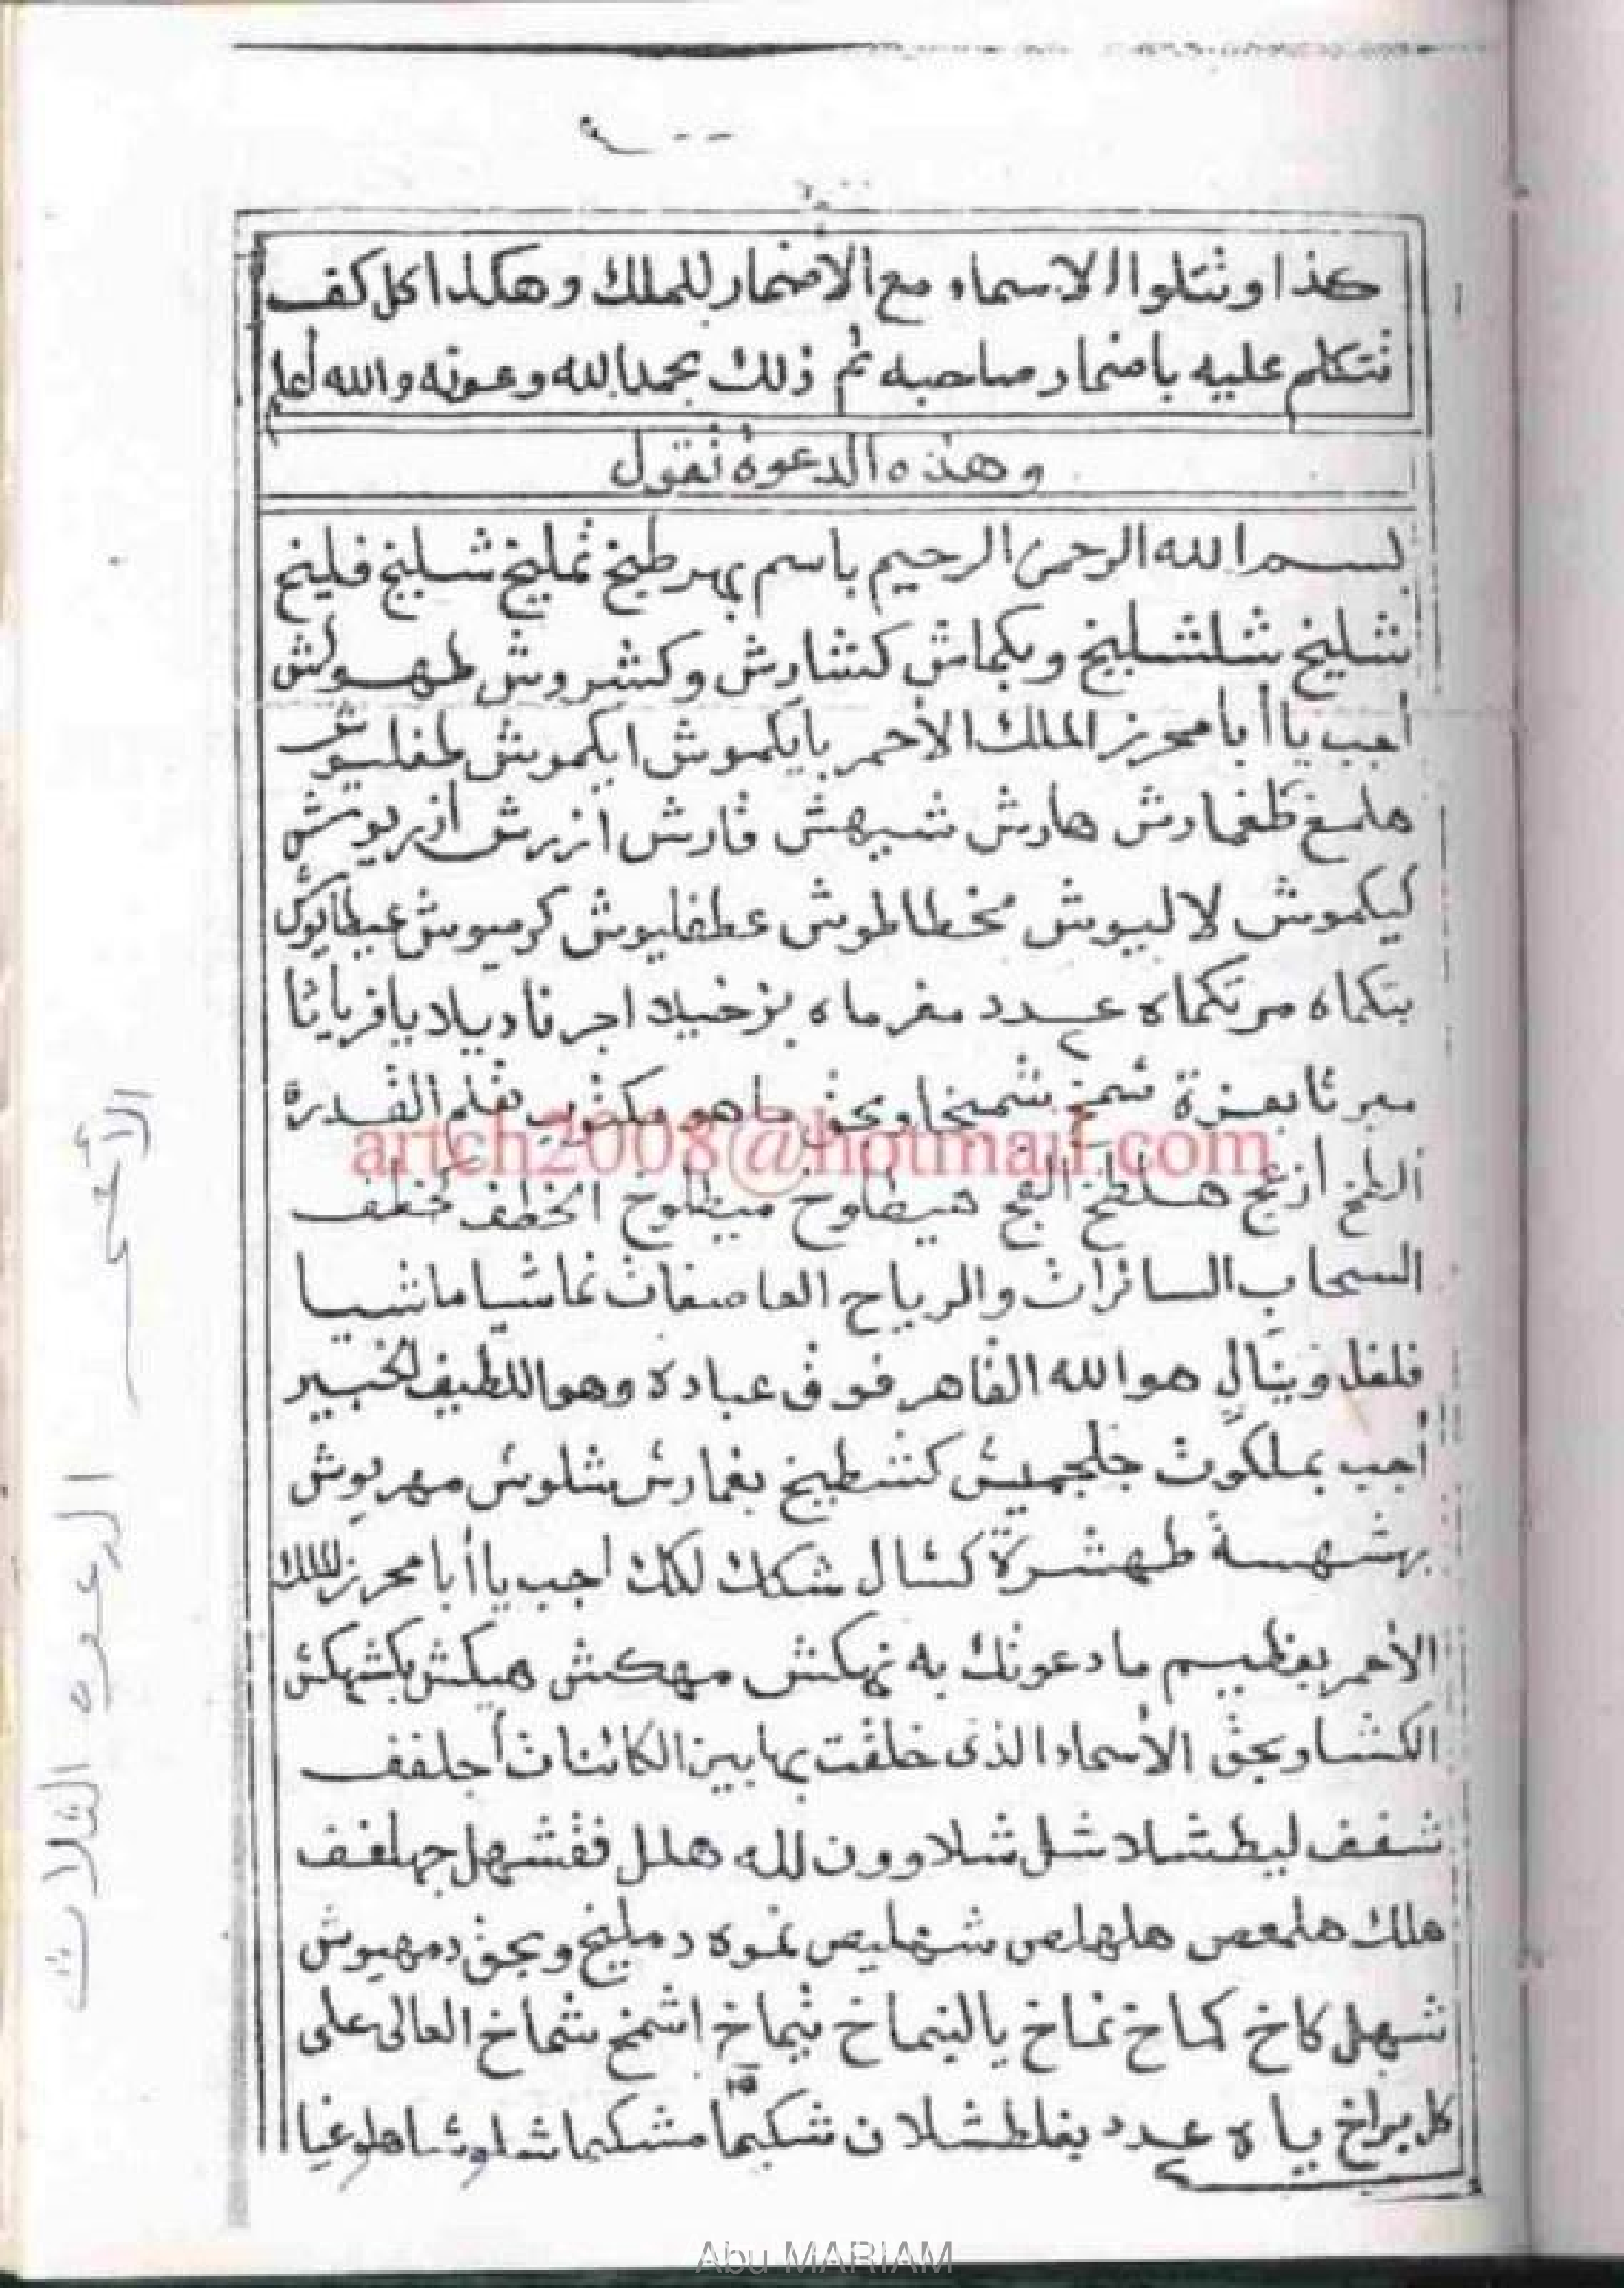 كذا وتتلوا الاسماء مع الاضمار للملك وهكذا كل كف
تتكلم عليه باضمار صاحبه تم ذلك بحمد الله وعونه والله أعلم
وهذه الدعوة تقول
بسم الله الرحمن الرحيم باسم بهرطيخ تمليخ شليخ فليخ
شليخ شلشليخ وبكماش كشارش وكشروش طهولش
أجب يا أبا محرز الملك الأحمر بايكموش ايكموش طفليوش
هلمغ طغمارش هارش شيهش قارش ازرش ازريوش
كيكموش لاليوش مخطالموش عطفليوش كرميوش
بتكماه مرتكماه عدد مغرماه بزخيلا اجرنا ديلا
بعزة شمخ شمخا وبحق ما هو مكتوب بقلم القدرة
ازعج هلطخ هيطلوخ ميطلوخ الخطف كخطف
السحاب السائرات والرياح العاصفات غاشيا ماشيا
هو الله القاهر فوق عباده وهو اللطيف الخبير
أجب بملكوت جلجميش كشطيخ بغمارش شلوش مهربوش
بهشهسة طهشرة كشال شكك لكك اجب يا أبا محرز الملك
الأحمر بعظيم ما دعوتك به نهكش مهكش هيكش بكشهكش
الكشا وبحق الأسماء الذى خلقت بها بين الكائنات أجلفف
شفف ليطشلا شل شلاوون لله هلل فقشهل جهلفف
هلك هلمعص هلهلص شهليص نموه دمليخ وبحق دمهيوش
شهل كاخ كماخ نماخ يا لشماخ شماخ اشمخ شماخ العالى على
كل براخ ياه عدد يغلطشلان شكيما مشكيما
الدعوه الثلاث
الأحمر
artch2008@hotmail.com
Abu MARIAM